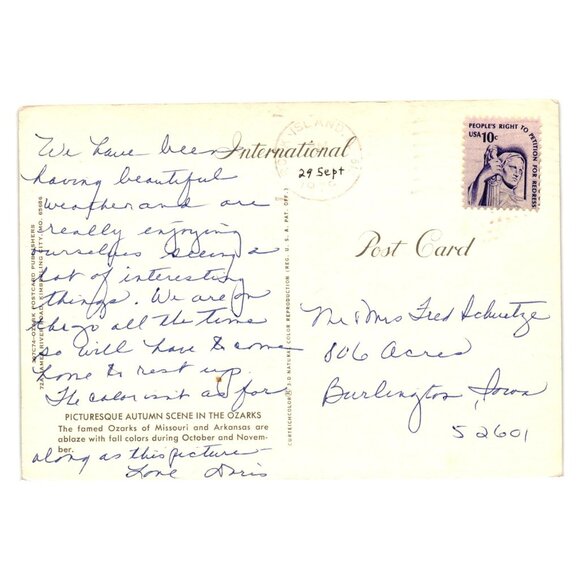 We have been
having beautiful
weather and are
really enjoying
ourselves seeing a
lot of interesting
things. We are on
the go all the time
so will have to come
home & rest up.
The color isnt as far
along as this picture
Love Doris
PICTURESQUE AUTUMN SCENE IN THE OZARKS
The famed Ozarks of Missouri and Arkansas are
ablaze with fall colors during October and Novem-
ber.
OZARK POSTCARD PUBLISHERS
CURTEICHCOLOR® 3-D NATURAL COLOR REPRODUCTION (REG. U.S.A. PAT. OFF.)
International
Post Card
ISLAND
29 Sept
PEOPLE'S RIGHT TO PETITION FOR REDRESS
USA 10c
Mr & Mrs Fred Schuetze
806 Acres
Burlington, Iowa
52601